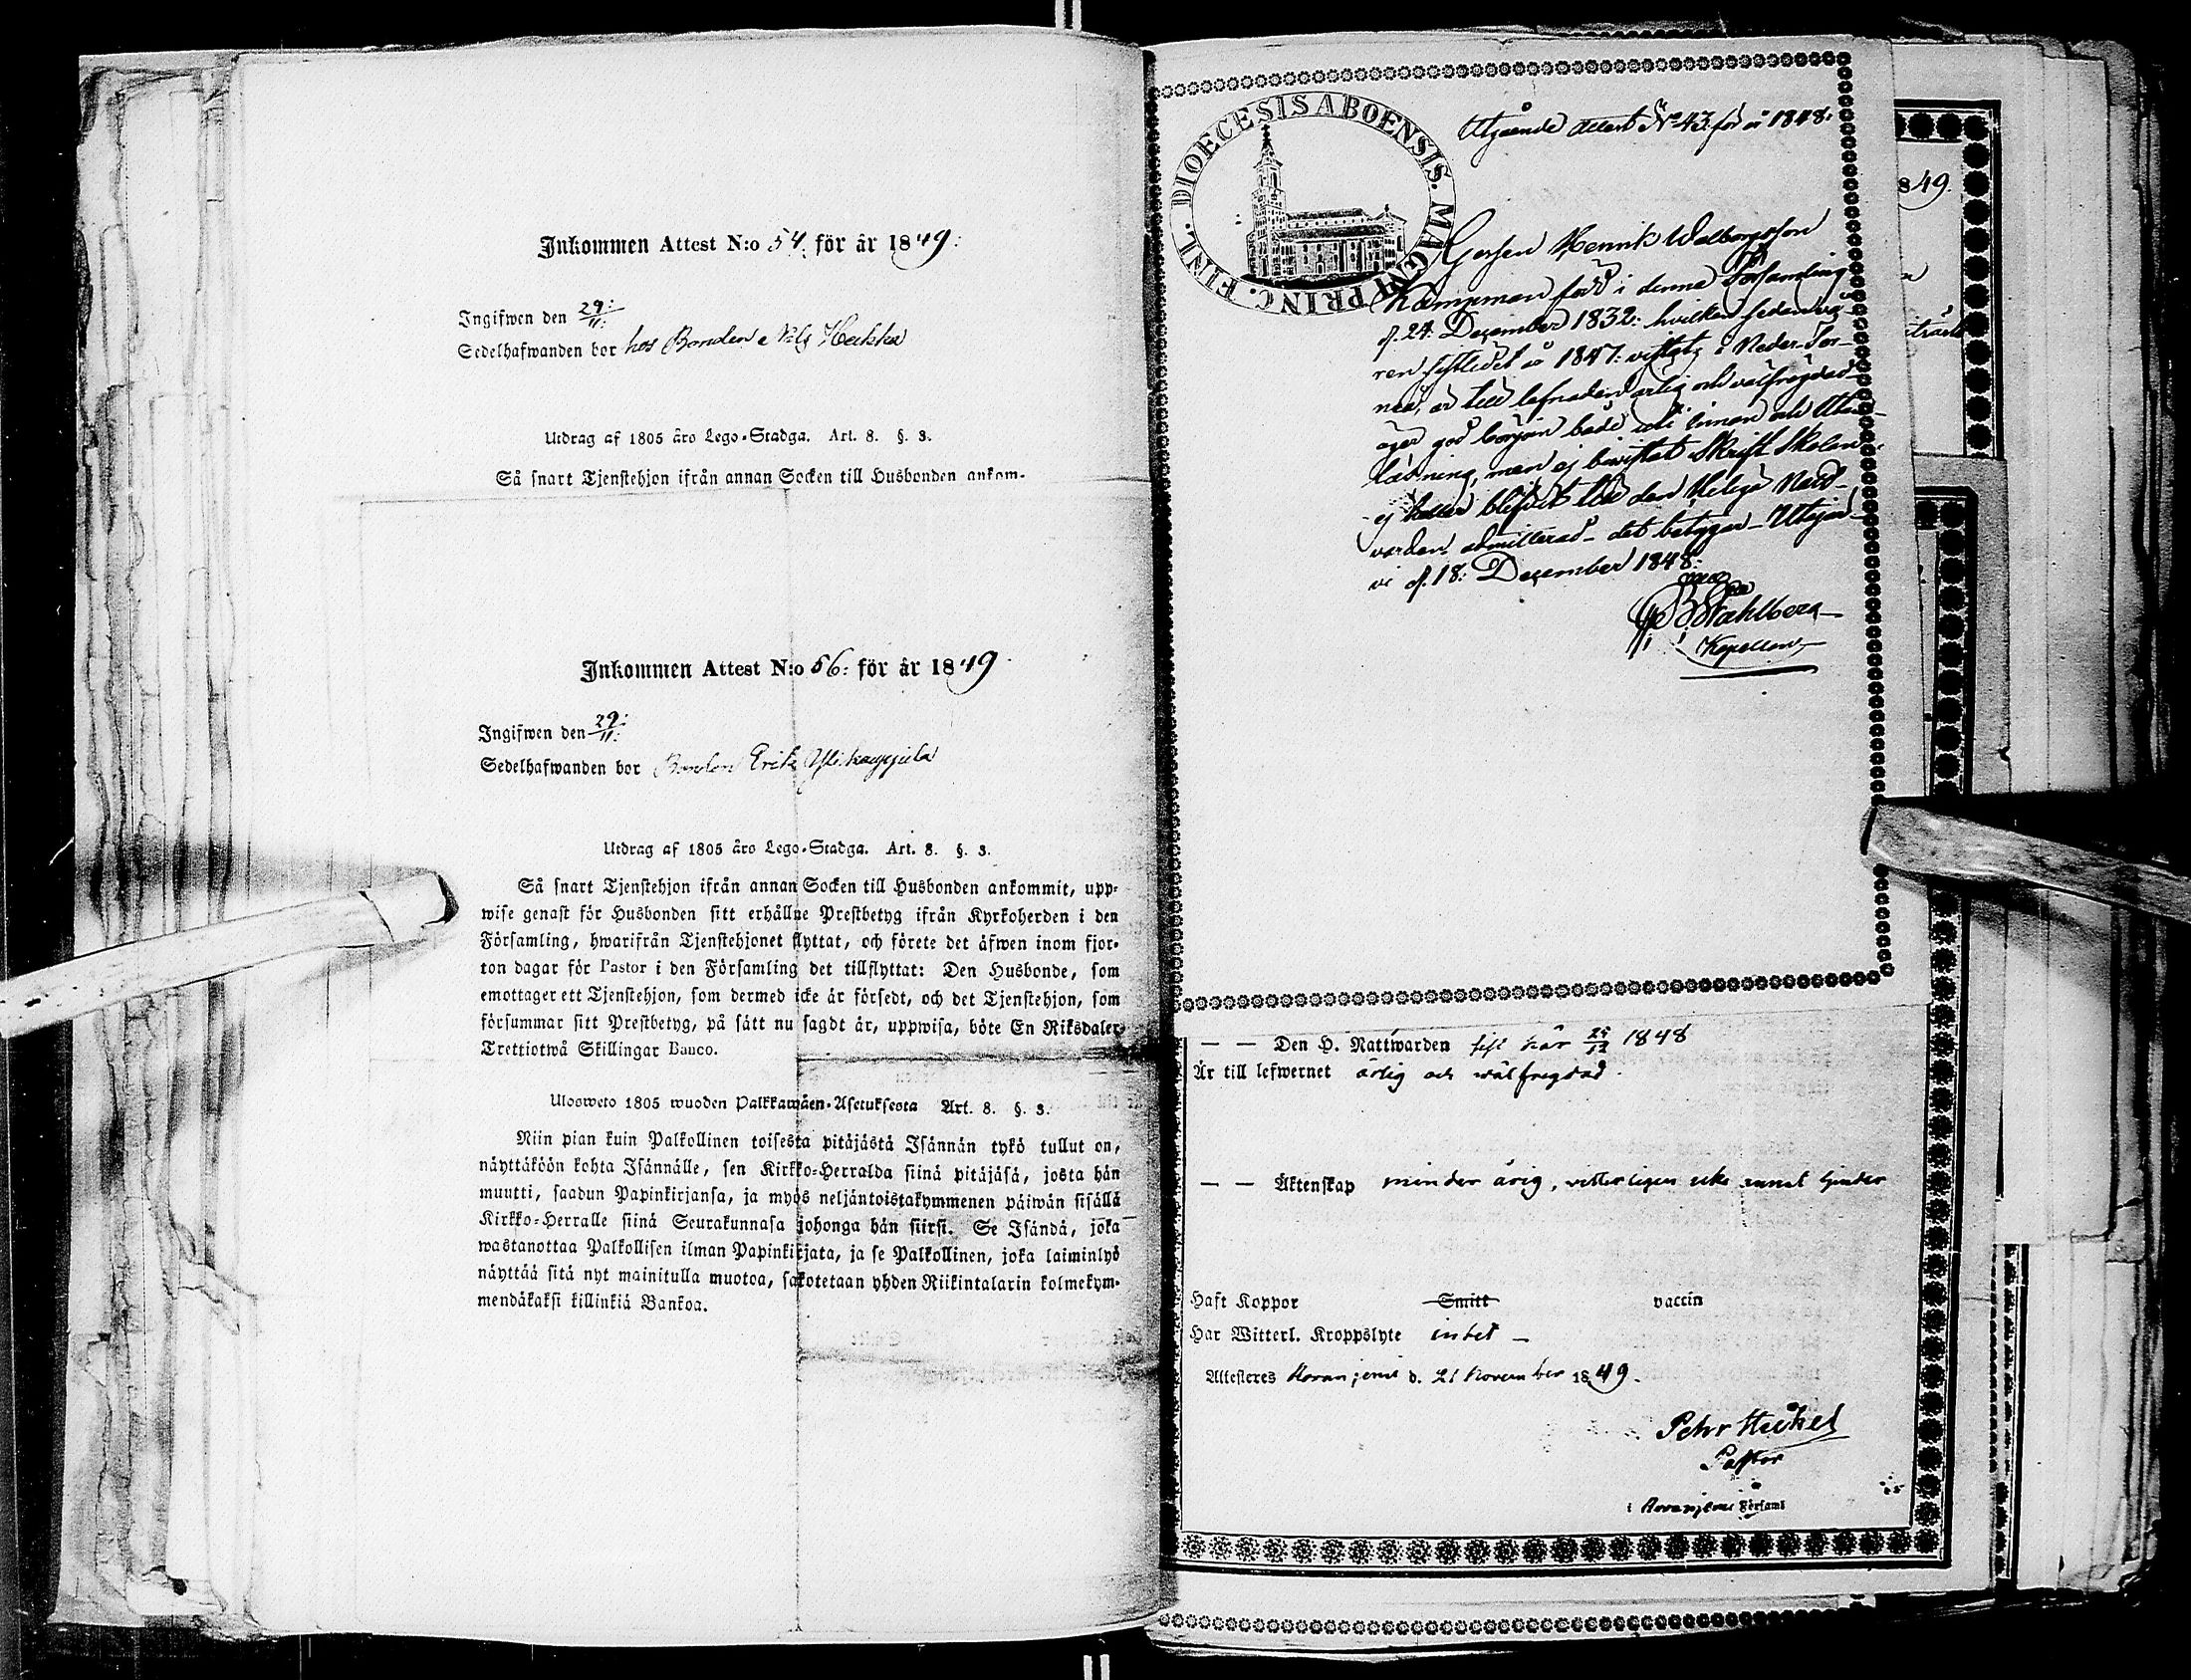 Inkommen Attest N:o 54. för år 1849:
Ingifwen den 29:/11:
Sedelhafwanden bor hos Bonden Nils Heikka
Utdrag af 1805 års Lego-Stadga. Art. 8. §. 3.
Så snart Tjenstehjon ifrån annan Socken till Husbonden ankom-
Inkommen Attest N:o 56: för år 1849
Ingifwen den 29:/11:
Sedelhafwanden bor Bonden Erik
Utdrag af 1805 års Lego-Stadga. Art. 8. §. 3.
Så snart Tjenstehjon ifrån annan Socken till Husbonden ankommit, upp-
wise genast för Husbonden sitt erhållne Prestbetyg ifrån Kyrkoherden i den
Församling, hwarifrån Tjenstehjonet flyttat, och förete det äfwen inom fjor-
ton dagar för Pastor i den Församling det tillflyttat: Den Husbonde, som
emottager ett Tjenstehjon, som dermed icke är försedt, och det Tjenstehjon, som
försummar sitt Prestbetyg, på sätt nu sagdt är, uppwisa, böte En Riksdaler
Trettiotwå Skillingar Banco.
Ulosweto 1805 wuoden Palkkawäen-Asetuksesta Art. 8. §. 3.
Niin pian kuin Palkollinen toisesta pitäjästä Isännän tykö tullut on,
näyttäköön kohta Isännälle, sen Kirkko-Herralda siinä pitäjäsä, josta hän
muutti, saadun Papinkirjansa, ja myös neljäntoistakymmenen päiwän sisällä
Kirkko-Herralle siinä Seurakunnasa johonga hän siirsi. Se Isändä, joka
wastanottaa Palkollisen ilman Papinkirjata, ja se Palkollinen, joka laiminlyö
näyttää sitä nyt mainitulla muotoa, sakotetaan yhden Riikintalarin kolmekym-
mendäkaksi killinkiä Bankoa.
DIOECESIS ABOENSIS. MAGNI PRINC. FINL.
Utgående attest No 43. för år 1848.
Gossen Henrik Walborgsson
Kampman född i denna Församling
d. 24. December 1832: hvilken sedan vå-
ren sistledet år 1847. vistats i Neder-Tor-
neå, är till lefnaden ärlig och välfrägdad
äger god början både uti innan och Utan
läsning, men ej bevistat Skrift Skolan
ej heller blifvit till den Heliga Natt-
varden admitterad det betygar
d. 18: December 1848:
Stahlberg
Kapellan
849.
— — Den H. Nattwarden sist här 25/12 1848
Är till lefwernet ärlig och wälfregdad.
— — Äktenskap minder årig, vitterligen icke annat hinder
Haft Koppor Smitt vaccin
Har Witterl. Kroppslyte intet —
Attesteres Rovaniemi d. 21 November 1849.
Pehr Heikel
Pastor
i Rovaniemi Församl